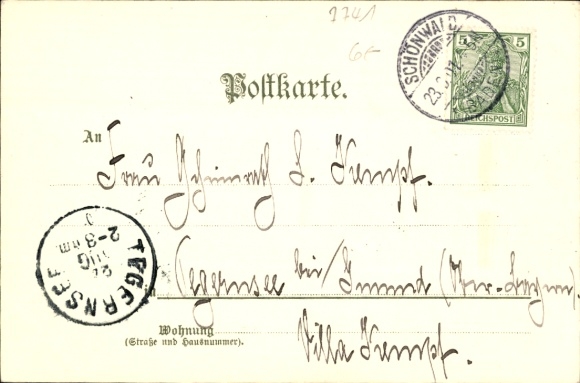 2741
6.-
SCHÖNWALD
BADEN
5 5
REICHSPOST
Postkarte.
An
Frau Geheimrath L. Kempf.
Tegernsee bei Gmund (Ober-Bayern).
Villa Kempf.
Wohnung
(Straße und Hausnummer).
TEGERNSEE
AUG
2-3